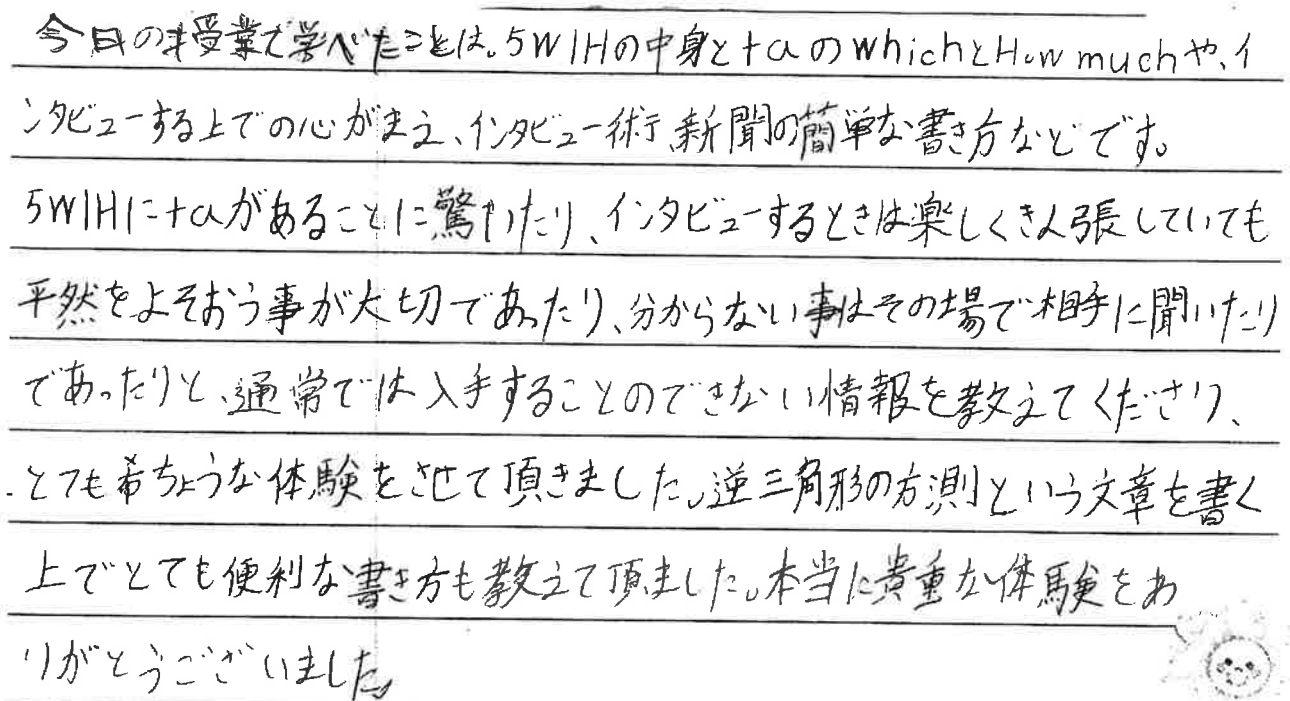 今日の授業で学べたことは。5W1Hの中身と+αのwhichとHow muchや、イ
ンタビューする上での心がまえ、インタビュー術、新聞の簡単な書き方などです。
5W1Hに+αがあることに驚いたり、インタビューするときは楽しくきん張していても
平然をよそおう事が大切であったり、分からない事はその場で相手に聞いたり
であったりと、通常では入手することのできない情報を教えてくださり、
とても希ちょうな体験をさせて頂きました。逆三角形の方測という文章を書く
上でとても便利な書き方も教えて頂ました。本当に貴重な体験をあ
りがとうございました。